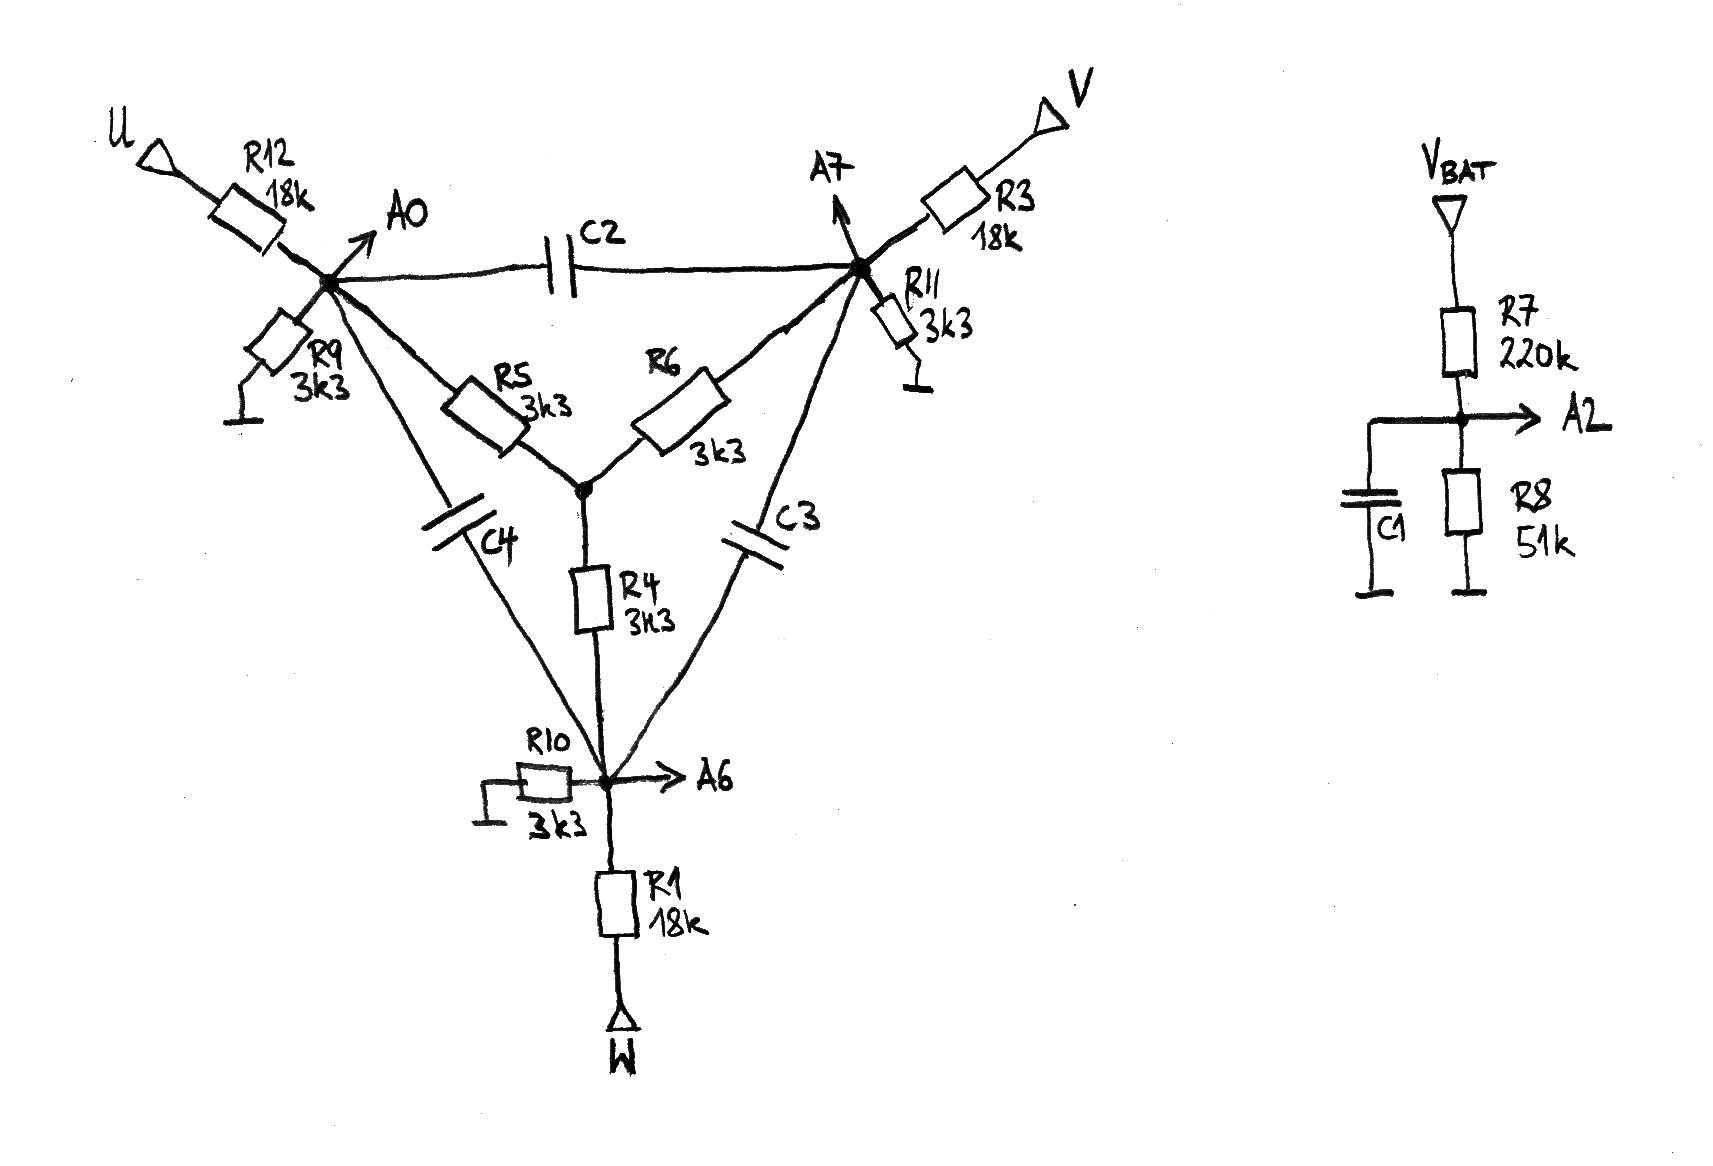 U
R12
18k
A0
R9
3k3
C2
A7
V
R3
18k
R11
3k3
R5
3k3
R6
3k3
C4
C3
R4
3k3
R10
3k3
A6
R1
18k
W
VBAT
R7
220k
A2
C1
R8
51k